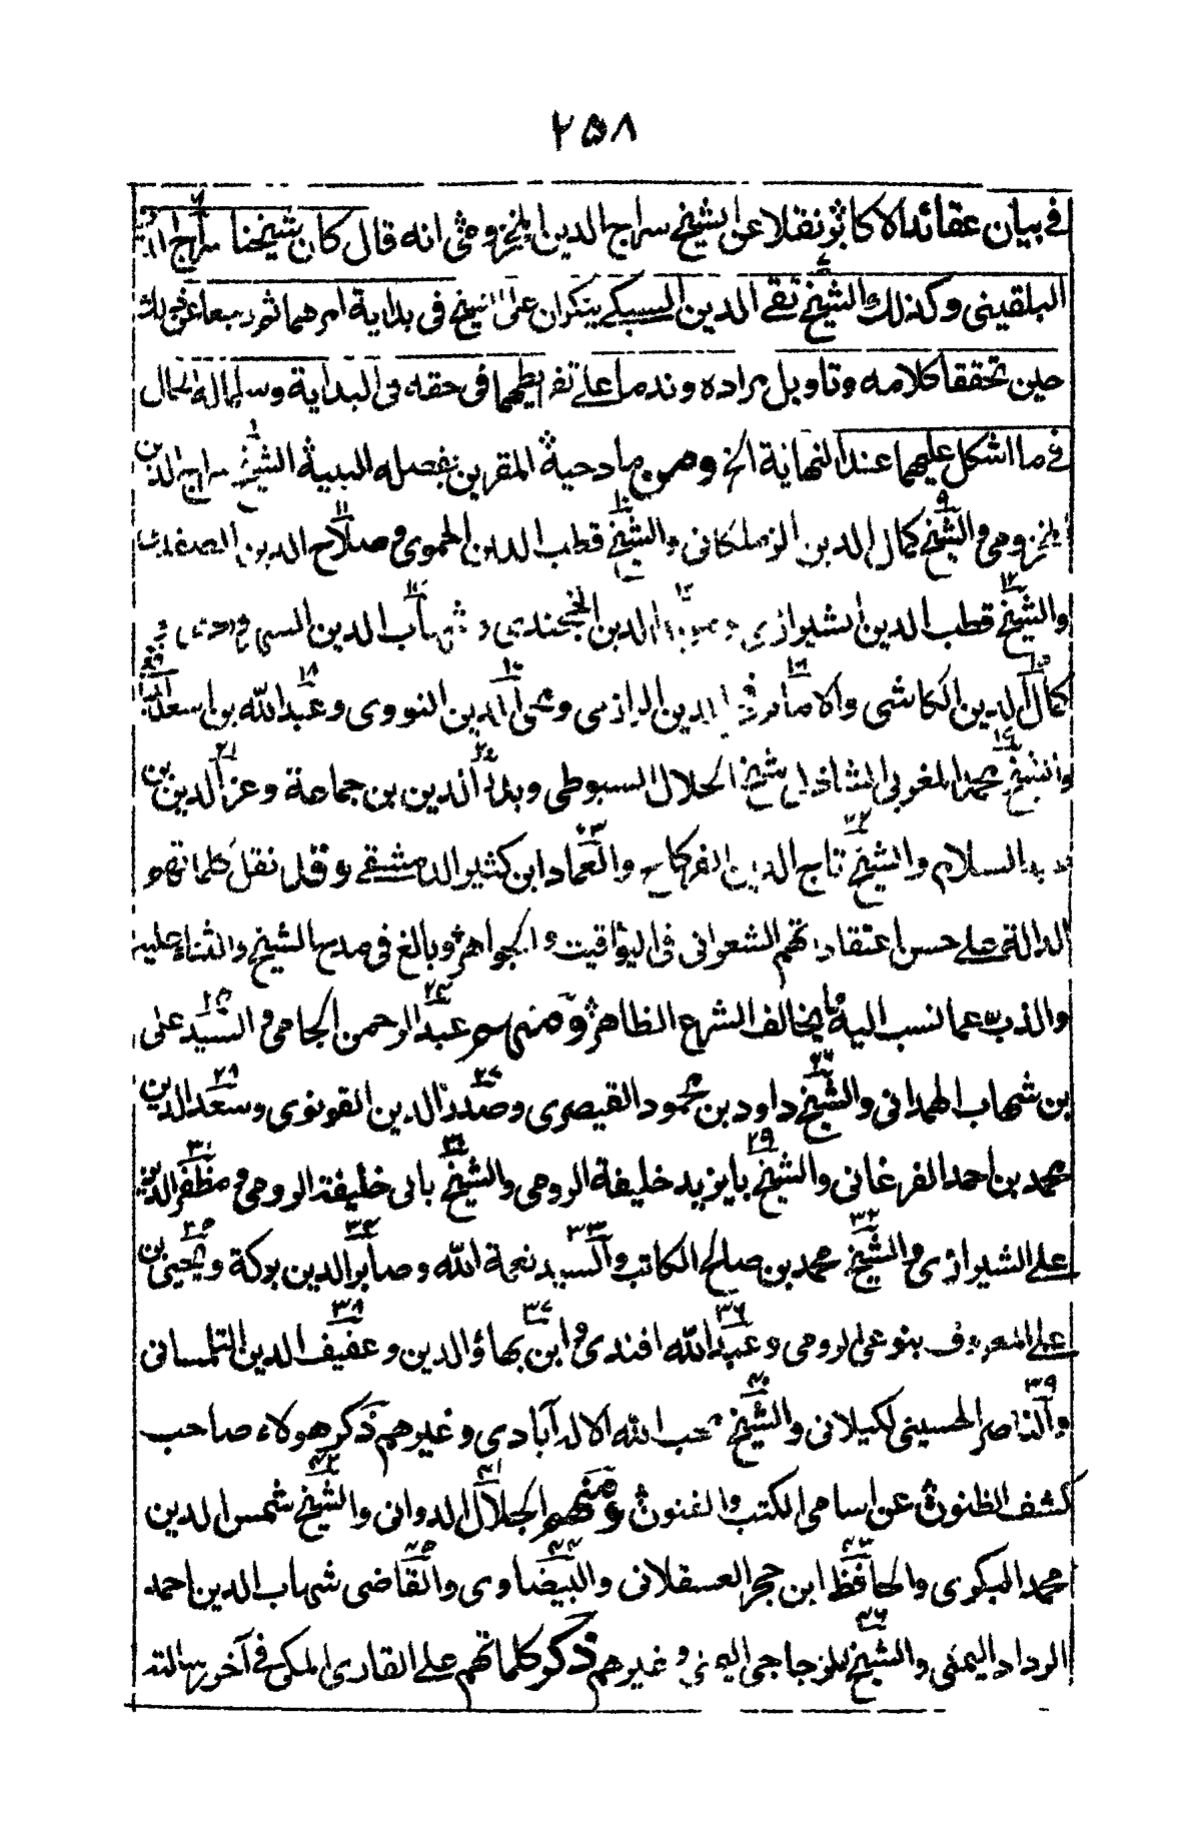 ٢٥٨
في بيان عقائد الاكابر نقلا عن الشيخ سراج الدين المخزومي انه قال كان شيخنا سراج الدين
البلقيني وكذلك الشيخ تقي الدين السبكي ينكران على الشيخ في بداية امرهما ثم رجعا عن ذلك
حين تحققا كلامه وتاويل مراده وندما على تفريطهما في حقه في البداية وسلما له الحال
في ما اشكل عليهما عند النهاية الخ ومن مادحيه المقرين بفضله الشيخ سراج الدين
المخزومي والشيخ كمال الدين الزملكاني والشيخ قطب الدين الحموي وصلاح الدين الصفدي
والشيخ قطب الدين الشيرازي الدين الخجندي وشهاب الدين
كمال الدين الكاشي والامام فخر الدين الرازي ومحي الدين النووي وعبد الله بن اسعد
والشيخ محمد المغربي الشاذلي شيخ الجلال السيوطي وبدر الدين بن جماعة وعز الدين بن
عبد السلام والشيخ تاج الدين الفركاح والعماد ابن كثير الدمشقي وقد نقل كلماتهم
الدالة على حسن اعتقاداتهم الشعراني في اليواقيت والجواهر وبالغ في مدح الشيخ والثناء عليه
والذب عما نسب اليه ما يخالف الشرع الظاهر ومنهم عبد الرحمن الجامي والسيد علي
بن شهاب الهمداني والشيخ داود بن محمود القيصري وصدر الدين القونوي وسعد الدين
محمد بن احمد الفرغاني والشيخ بايزيد خليفة الرومي والشيخ بالى خليفة الرومي ومظفر الدين
علي الشيرازي والشيخ محمد بن صلح الكاتب والسيد نعمة الله وصابر الدين بركة ويحيى بن
علي المعروف بنوعي الرومي وعبد الله افندي وابن بهاؤ الدين وعفيف الدين التلمساني
والناصر الحسيني لكيلاني والشيخ محب الله الاله آبادي وغيرهم ذكر هولاء صاحب
كشف الظنون عن اسامي الكتب والفنون ومنهم الجلال الدواني والشيخ شمس الدين
محمد البكري والحافظ ابن حجر العسقلاني والبيضاوي والقاضي شهاب الدين احمد
الرداد اليمني والشيخ اليمني وغيرهم ذكر كلماتهم علي القاري المكي في آخر رسالته